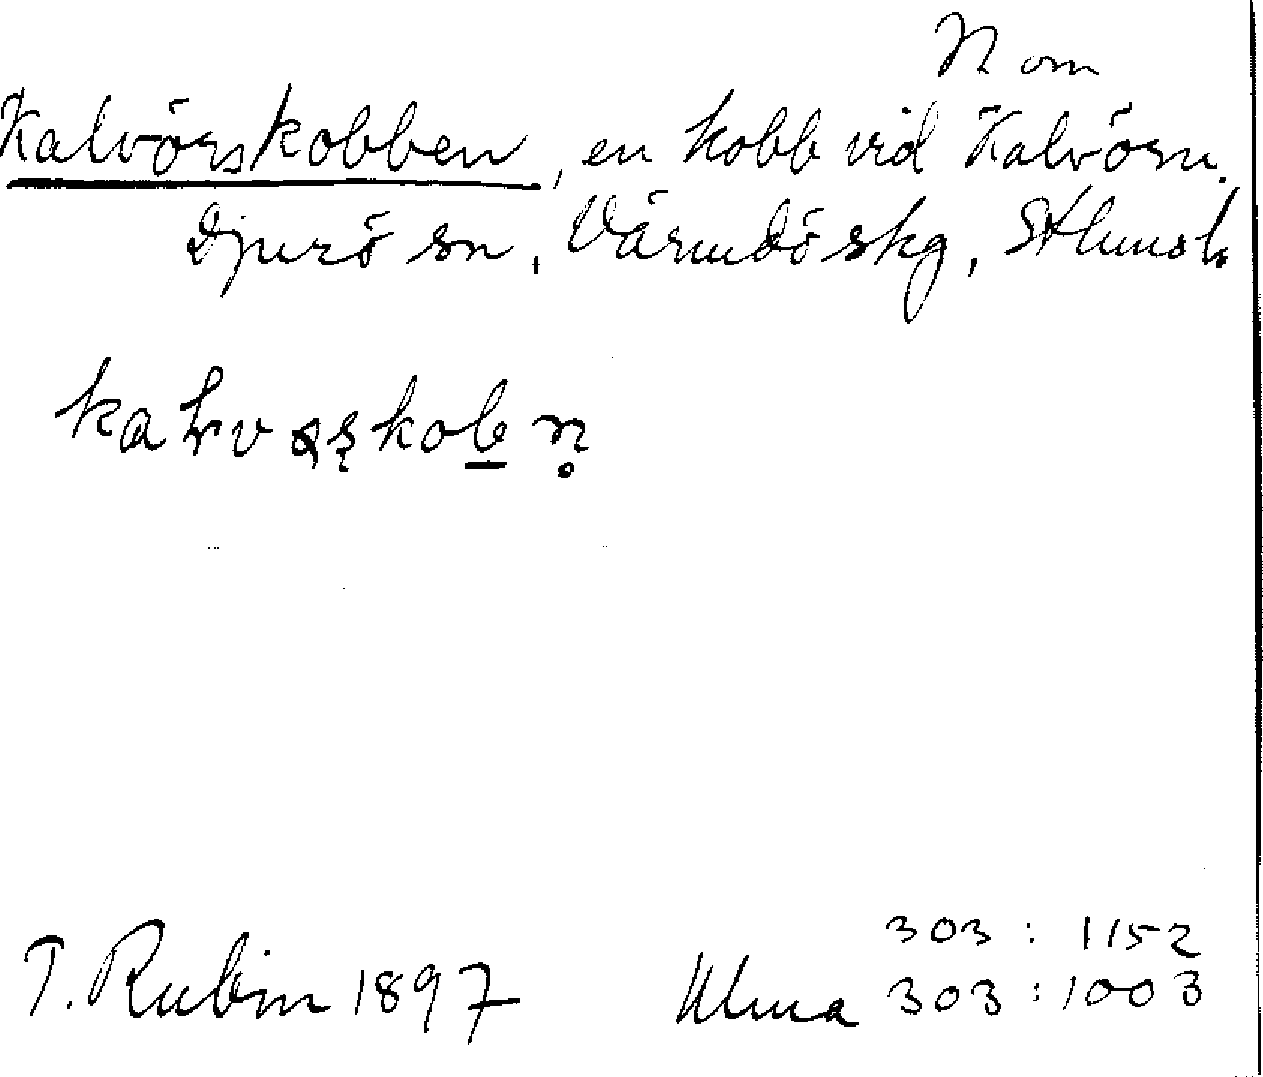 N om
Kalvörskobben, en kobb vid Kalvörn.
Djurö sn, Värmdö skg, Sthms l.
T. Rubin 1897
303 : 1152
Ulma 303 : 1003